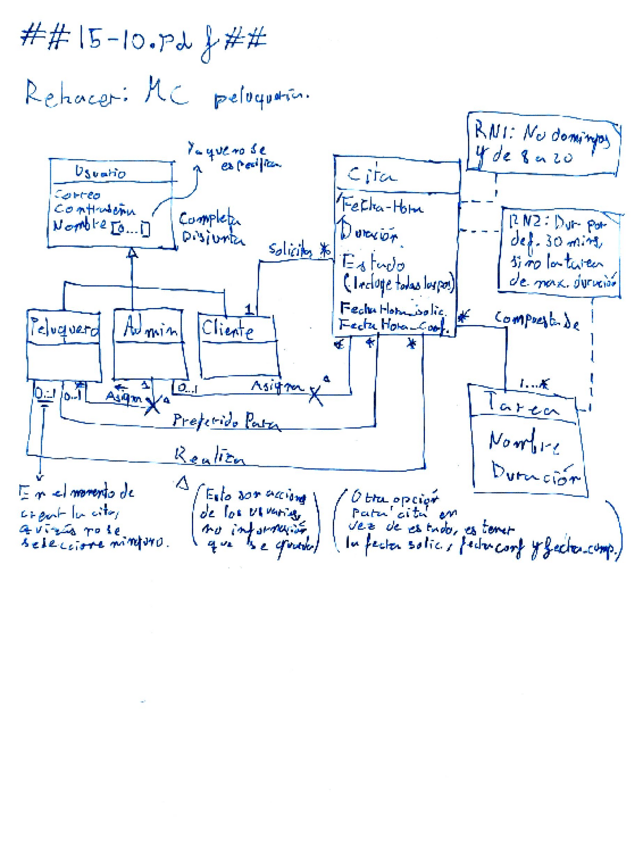 ##15-10.pdf##
Rehacer: MC peluquería.
RN1: No domingos
y de 8 a 20
Ya que no se
especifica
Usuario
Correo
Contraseña
Nombre [0...1]
Completa
Disjunta
Cita
Fecha-Hora
Duración
Estado
(Incluye todas las pos)
FechaHora_solic.
FechaHora_conf.
RN2: Dur por
def. 30 mins,
si no la tarea
de max. duración
Solicita *
1
Peluquero
Admin
Cliente
* * *
* Compuesta de
1...*
Tarea
Nombre
Duración
0..1
0..1
*
Asigna
1
0..1
Asigna
Preferido Para
Realiza
En el momento de
crear la cita,
quizás no se
seleccione ninguno.
(Esto son acciones
de los usuarios,
no información
que se guarda)
(Otra opción
para cita en
vez de estado, es tener
la fecha solic., fecha conf y fecha-comp.)